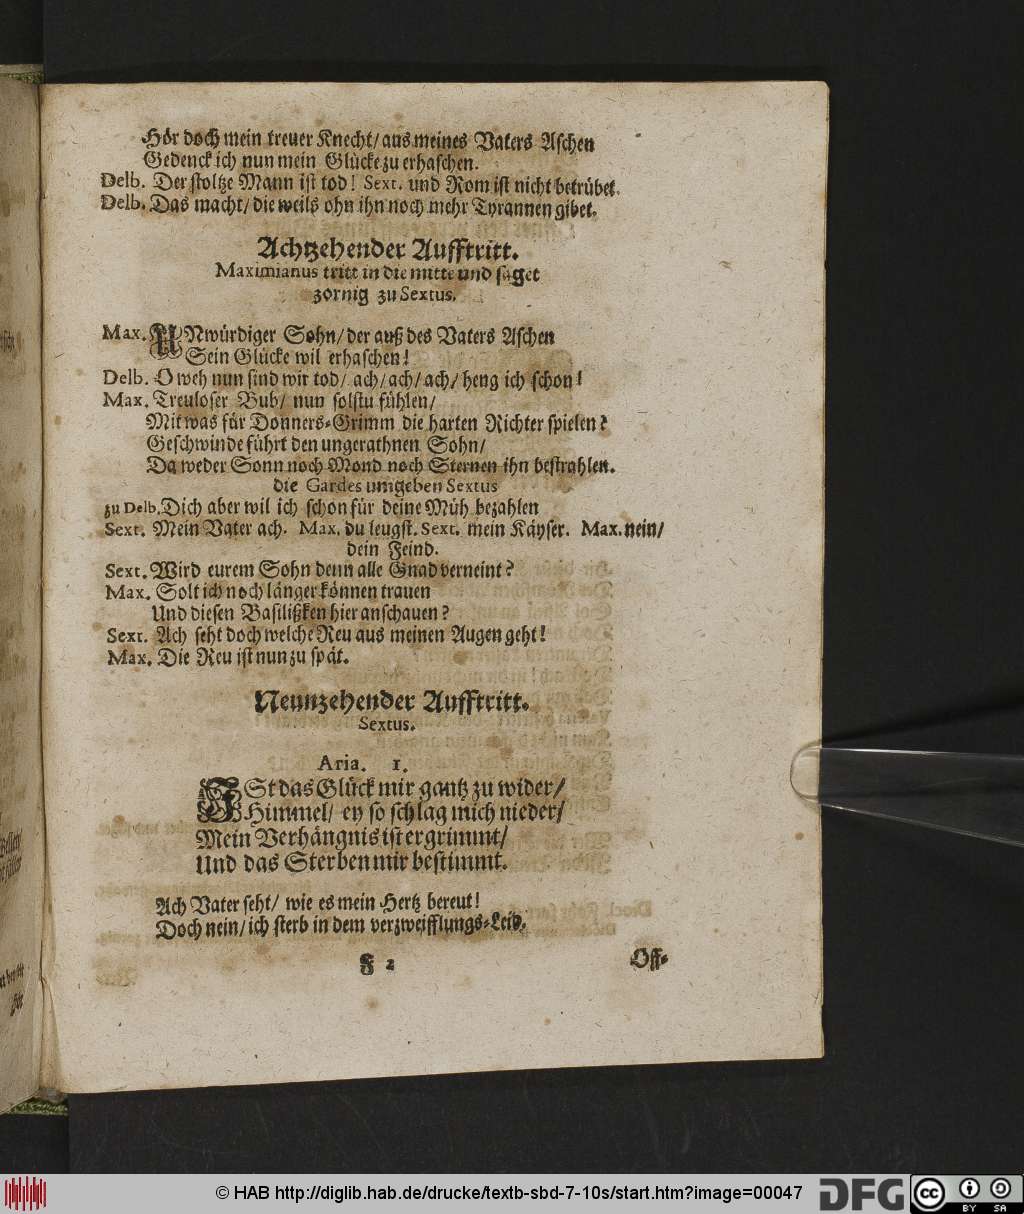 Hör doch mein treuer Knecht/ aus meines Vaters Aschen
Gedenck ich nun mein Glücke zu erhaschen.
Delb. Der stoltze Mann ist tod! Sext. und Rom ist nicht betrübet.
Delb. Das macht/ die weils ohn ihn noch mehr Tyrannen gibet.
Achtzehender Aufftritt.
Maximianus tritt in die mitte und saget
zornig zu Sextus.
Max. UNwürdiger Sohn/ der auß des Vaters Aschen
Sein Glücke wil erhaschen!
Delb. O weh nun sind wir tod/ ach/ ach/ ach/ heng ich schon!
Max. Treuloser Bub/ nun solstu fühlen/
Mit was für Donners-Grimm die harten Richter spielen?
Geschwinde führt den ungerathnen Sohn/
Da weder Sonn noch Mond noch Sternen ihn bestrahlen.
die Gardes umgeben Sextus
zu Delb. Dich aber wil ich schon für deine Müh bezahlen
Sext. Mein Vater ach. Max. du leugst. Sext. mein Käyser. Max. nein/
dein Feind.
Sext. Wird eurem Sohn denn alle Gnad verneint?
Max. Solt ich noch länger können trauen
Und diesen Basilißken hier anschauen?
Sext. Ach seht doch welche Reu aus meinen Augen geht!
Max. Die Reu ist nun zu spät.
Neunzehender Aufftritt.
Sextus.
Aria. 1.
ISt das Glück mir gantz zu wider/
Himmel/ ey so schlag mich nieder/
Mein Verhängnis ist ergrimmt/
Und das Sterben mir bestimmt.
Ach Vater seht/ wie es mein Hertz bereut!
Doch nein/ ich sterb in dem verzweifflungs-Leid.
F 2
Off-
© HAB http://diglib.hab.de/drucke/textb-sbd-7-10s/start.htm?image=00047
DFG
cc
BY SA